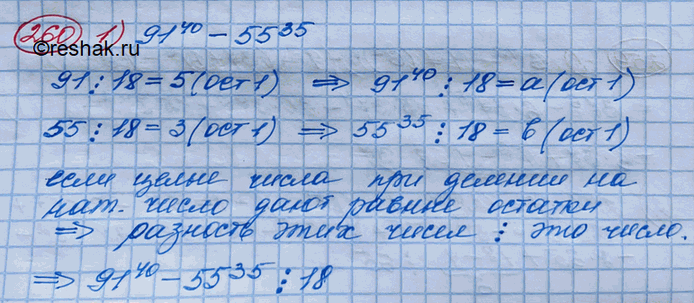 260 1) 91⁴⁰ − 55³⁵
©reshak.ru
91 ⋮ 18 = 5 (ост 1) ⇒ 91⁴⁰ ⋮ 18 = a (ост 1)
55 ⋮ 18 = 3 (ост 1) ⇒ 55³⁵ ⋮ 18 = b (ост 1)
если целые числа при делении на
нат. число дают равные остатки
⇒ разность этих чисел ⋮ это число.
⇒ 91⁴⁰ − 55³⁵ ⋮ 18